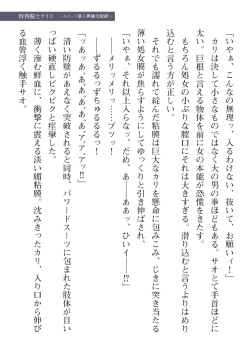 「いやぁ、こんなの無理ッ、入るわけない、抜いて、お願いィ！」
カリは決して小さなものではなく大の男の拳ほどもある。サオとて手首ほどに
太い。巨根と言える物体を前に女の本能が恐慌をきたす。
もちろん処女の小ぶりな膣口にそれは大きすぎる。潜り込むと言うよりはめり
込むと言う方が正しい。
それでも濡れて綻んだ粘膜は巨大なカリを懸命に包みこみ、じきに突き当たる
薄い処女膜が焦らすようにじんでゆっくりと引き伸ばされ、
「いやぁ、それ以上入らなッ、だめ、あ――ああッ、ひぃイ――!?」
メリッメリッ……ブツッ！
――ずるるっずりゅるるるっ！
「ッあッああああああァアァアッ!!」
清い防壁があえなく突破されると同時、パワードスーツに包まれた肢体が目いっ
ぱい硬直しビクビクと痙攣した。
薄く滲む鮮血に、衝撃に震える淡い媚粘膜。沈みきったカリ、入り口から伸び
る血管浮く触手サオ。